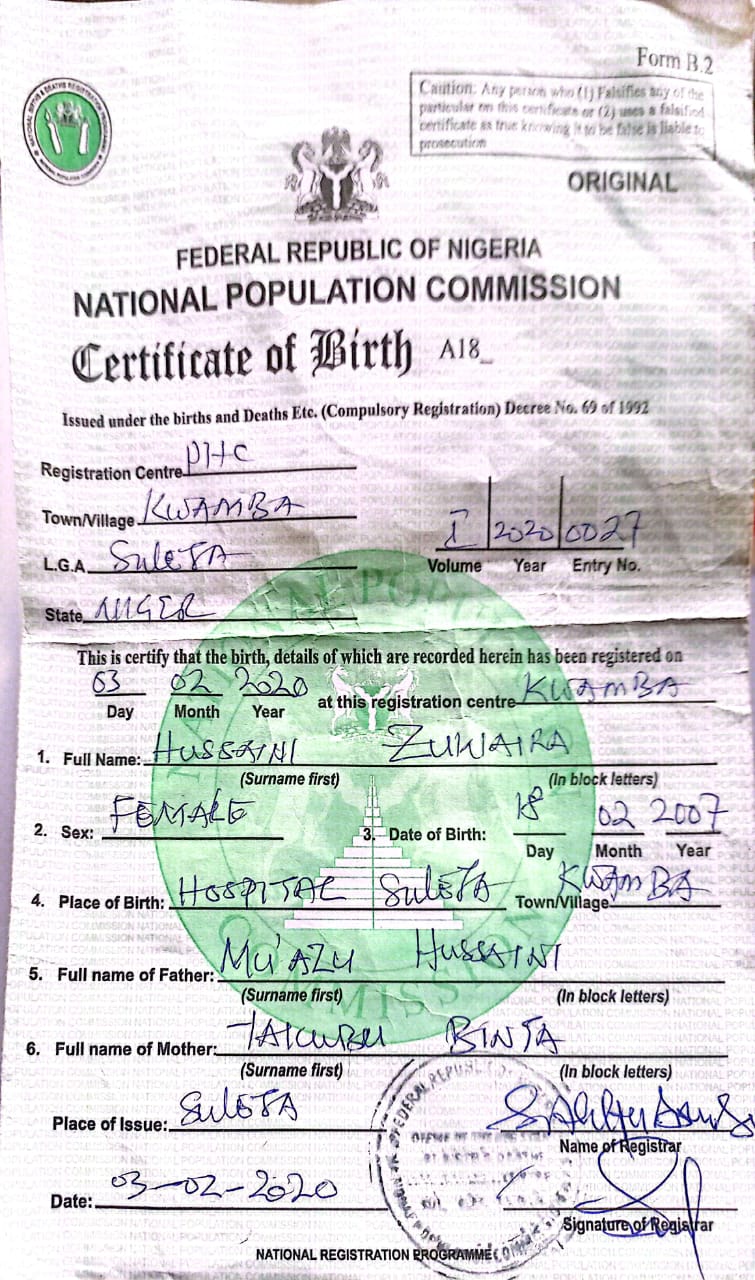 Form B.2
Caution: Any person who (1) Falsifies any of the
particular on this certificate or (2) uses a falsified
certificate as true knowing it to be false is liable to
prosecution
ORIGINAL
FEDERAL REPUBLIC OF NIGERIA
NATIONAL POPULATION COMMISSION
Certificate of Birth A18_
Issued under the births and Deaths Etc. (Compulsory Registration) Decree No. 69 of 1992
Registration Centre PHC
Town/Village KWAMBA
I 2020 0027
L.G.A. SULEJA
Volume Year Entry No.
State NIGER
This is certify that the birth, details of which are recorded herein has been registered on
03 02 2020 at this registration centre KWAMBA
Day Month Year
1. Full Name: HUSSAINI ZUWAIRA
(Surname first) (In block letters)
2. Sex: FEMALE 3. Date of Birth: 18 02 2007
Day Month Year
4. Place of Birth: HOSPITAL SULEJA Town/Village KWAMBA
5. Full name of Father: MU'AZU HUSSAINI
(Surname first) (In block letters)
6. Full name of Mother: YAKUBU BINTA
(Surname first) (In block letters)
Place of Issue: SULEJA
Name of Registrar
Date: 03-02-2020
Signature of Registrar
NATIONAL REGISTRATION PROGRAMME